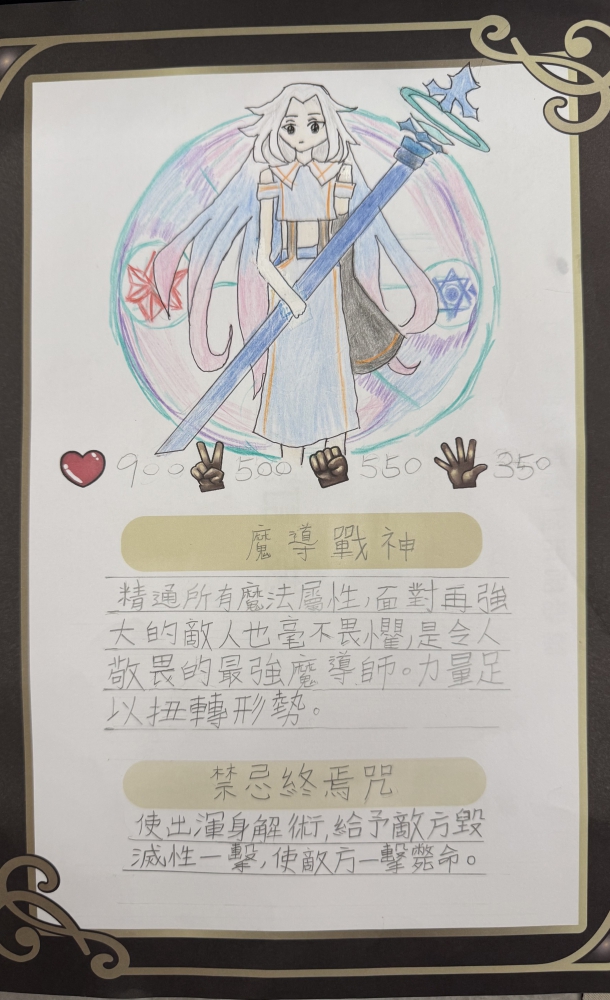 900 500 550 350
魔導戰神
精通所有魔法屬性,面對再強
大的敵人也毫不畏懼,是令人
敬畏的最強魔導師。力量足
以扭轉形勢。
禁忌終焉咒
使出渾身解術,給予敵方毀
滅性一擊,使敵方一擊斃命。